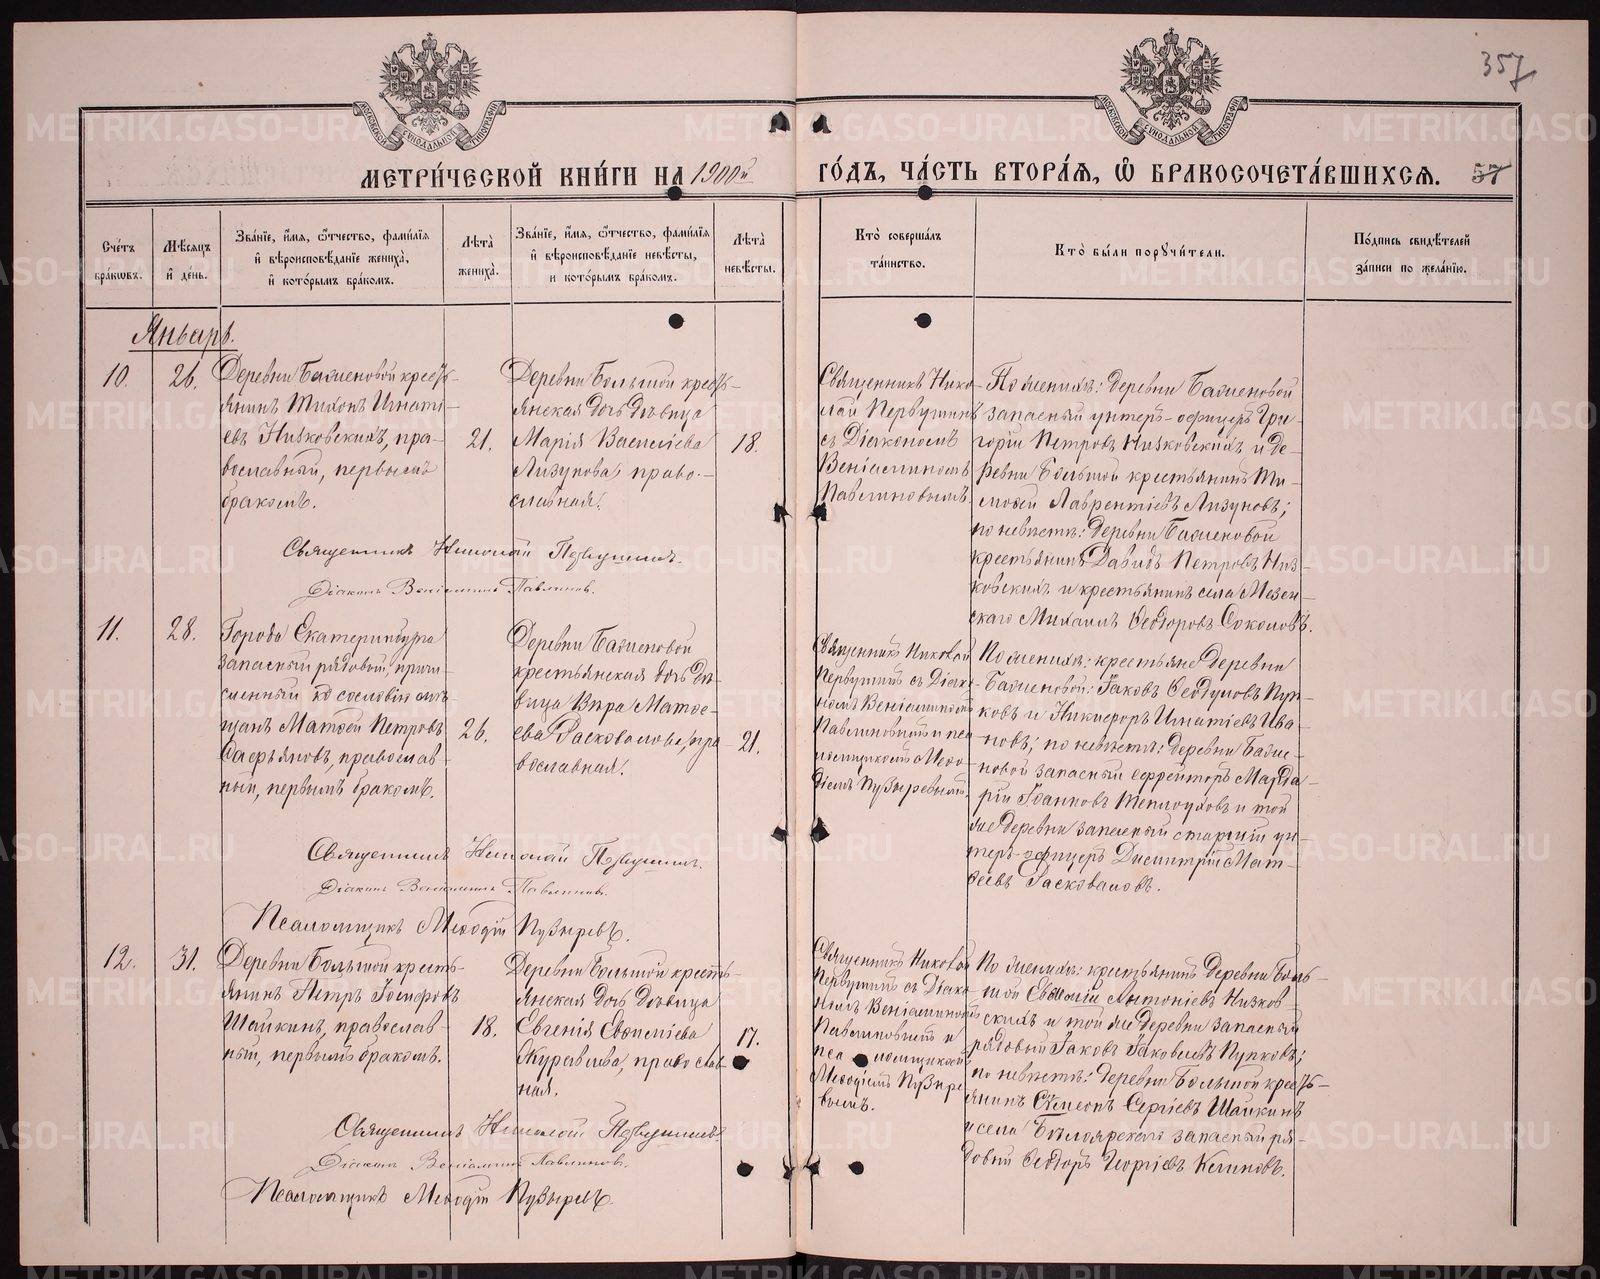 357
МОСКОВСКОЙ СѴНОДАЛЬНОЙ ТИПОГРАФІИ
МОСКОВСКОЙ СѴНОДАЛЬНОЙ ТИПОГРАФІИ
МЕТРИ́ЧЕСКОЙ КНИ́ГИ НА 1900й ГО́ДЪ, ЧА́СТЬ ВТОРА́Я, Ѽ БРАКОСОЧЕТА́ВШИХСЯ. 57
Сче́тъ бра́кѡвъ.
Мѣ́сяцъ и де́нь.
Зва́нїе, и́мя, ѻ́тчество, фами́лїя и вѣроисповѣ́данїе жениха̀, и кото́рымъ бра́комъ.
Лѣ́та жениха̀.
Зва́нїе, и́мя, ѻ́тчество, фами́лїя и вѣроисповѣ́данїе невѣ́сты, и кото́рымъ бра́комъ.
Лѣ́та невѣ́сты.
Кто̀ соверша́лъ та́инство.
Кто̀ бы́ли порꙋчи́тели.
По́дпись свидѣ́телей за́писи по жела́нїю.
Январь.
10.
26.
Деревни Баженовой кресть-
янинъ Тихонъ Игнаті-
евъ Низковскихъ, пра-
вославный, первымъ
бракомъ.
21.
Деревни Большой кресть-
янская дочь дѣвица
Марія Василіева
Лизунова, право-
славная.
18.
Священникъ Нико-
лай Первушинъ
съ Діакономъ
Веніаминомъ
Павлиновымъ.
По женихѣ: деревни Баженовой
запасный унтеръ-офицеръ Гри-
горій Петровъ Низковскихъ и де-
ревни Большой крестьянинъ Ти-
моѳей Лаврентіевъ Лизуновъ;
по невѣстѣ: деревни Баженовой
крестьянинъ Давидъ Петровъ Низ-
ковскихъ и крестьянинъ села Мезен-
скаго Михаилъ Ѳедоровъ Соколовъ.
Священникъ Николай Первушинъ.
Діаконъ Веніаминъ Павлиновъ.
11.
28.
Города Екатеринбурга
запасный рядовой, причи-
сленный къ сословію мѣ-
щанъ Матѳей Петровъ
Сафьяновъ, православ-
ный, первымъ бракомъ.
26.
Деревни Баженовой
крестьянская дочь дѣ-
вица Вѣра Матѳе-
ева Расковалова, пра-
вославная.
21.
Священникъ Николай
Первушинъ съ Діако-
номъ Веніаминомъ
Павлиновымъ и пса-
ломщикомъ Меѳо-
діемъ Пузыревымъ.
По женихѣ: крестьяне деревни
Баженовой: Іаковъ Ѳедуловъ Пуп-
ковъ и Никифоръ Игнатіевъ Ива-
новъ; по невѣстѣ: деревни Баже-
новой запасный ефрейторъ Марда-
рій Іоанновъ Теплоуховъ и той
же деревни запасный старшій ун-
теръ-офицеръ Димитрій Мат-
ѳеевъ Расковаловъ.
Священникъ Николай Первушинъ.
Діаконъ Веніаминъ Павлиновъ.
Псаломщикъ Меѳодій Пузыревъ.
12.
31.
Деревни Большой кресть-
янинъ Петръ Іосифовъ
Шайкинъ, православ-
ный, первымъ бракомъ.
18.
Деревни Большой кресть-
янская дочь дѣвица
Евгенія Евѳиміева
Журавлева, православ-
ная.
17.
Священникъ Николай
Первушинъ съ Діако-
номъ Веніаминомъ
Павлиновымъ и
псаломщикомъ
Меѳодіемъ Пузыре-
вымъ.
По женихѣ: крестьянинъ деревни Боль-
шой Евѳимій Антоніевъ Низков-
скихъ и той же деревни запасный
рядовый Іаковъ Іаковлевъ Пупковъ;
по невѣстѣ: деревни Большой кресть-
янинъ Симеонъ Сергіевъ Шайкинъ
и села Бѣлоярскаго запасный ря-
довый Ѳедоръ Георгіевъ Келиновъ.
Священникъ Николай Первушинъ.
Діаконъ Веніаминъ Павлиновъ.
Псаломщикъ Меѳодій Пузыревъ.
METRIKI.GASO-URAL.RU